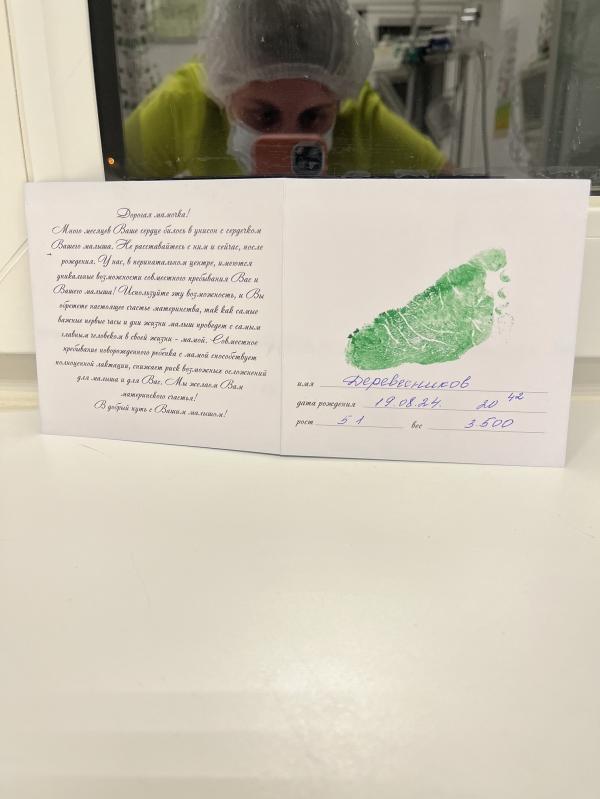 Дорогая мамочка!
Много месяцев Ваше сердце билось в унисон с сердечком
Вашего малыша. Не расставайтесь с ним и сейчас, после
рождения. У нас, в перинатальном центре, имеются
уникальные возможности совместного пребывания Вас и
Вашего малыша! Используйте эту возможность, и Вы
обретете настоящее счастье материнства, так как самые
важные первые часы и дни жизни малыш проведет с самым
главным человеком в своей жизни - мамой. Совместное
пребывание новорожденного ребенка с мамой способствует
полноценной лактации, снижает риск возможных осложнений
для малыша и для Вас. Мы желаем Вам
материнского счастья!
В добрый путь с Вашим малышом!
имя Деревесников
дата рождения 19.08.24. 20 42
рост 51 вес 3.500